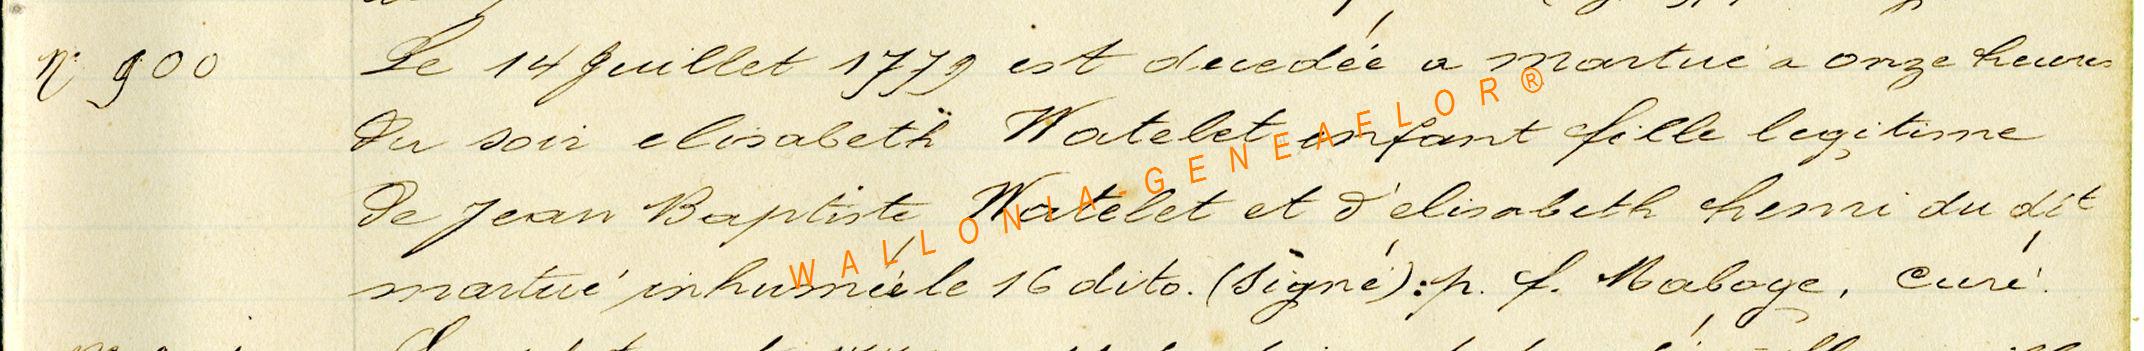 N° 900
Le 14 Juillet 1779 est decedée a martué a onze heures
du soir elisabeth Watelet enfant fille legitime
de Jean Baptiste Watelet et d'elisabeth henri du dit
martué inhumée le 16 dito. (Signé): p. f. Maboge, Curé.
WALLONIA-GENEAFLOR®